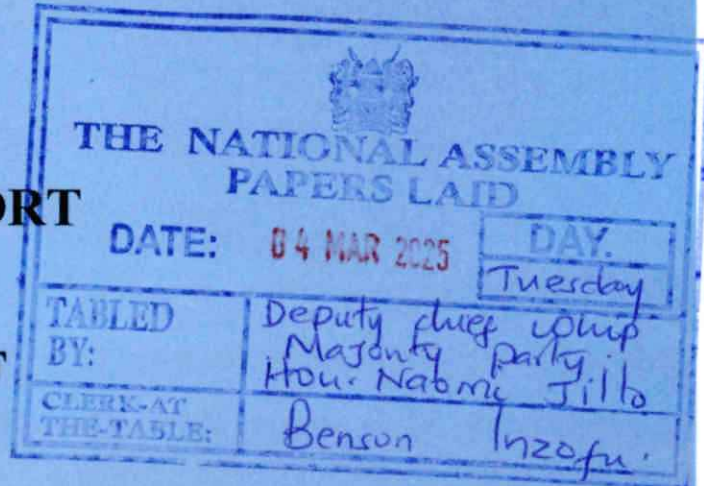 THE NATIONAL ASSEMBLY
PAPERS LAID
ORT
DATE: 04 MAR 2025 DAY.
Tuesday
TABLED BY: Deputy chief whip
Majority party.
Hon. Naomi Jillo
T
CLERK-AT THE-TABLE: Benson Inzofu.